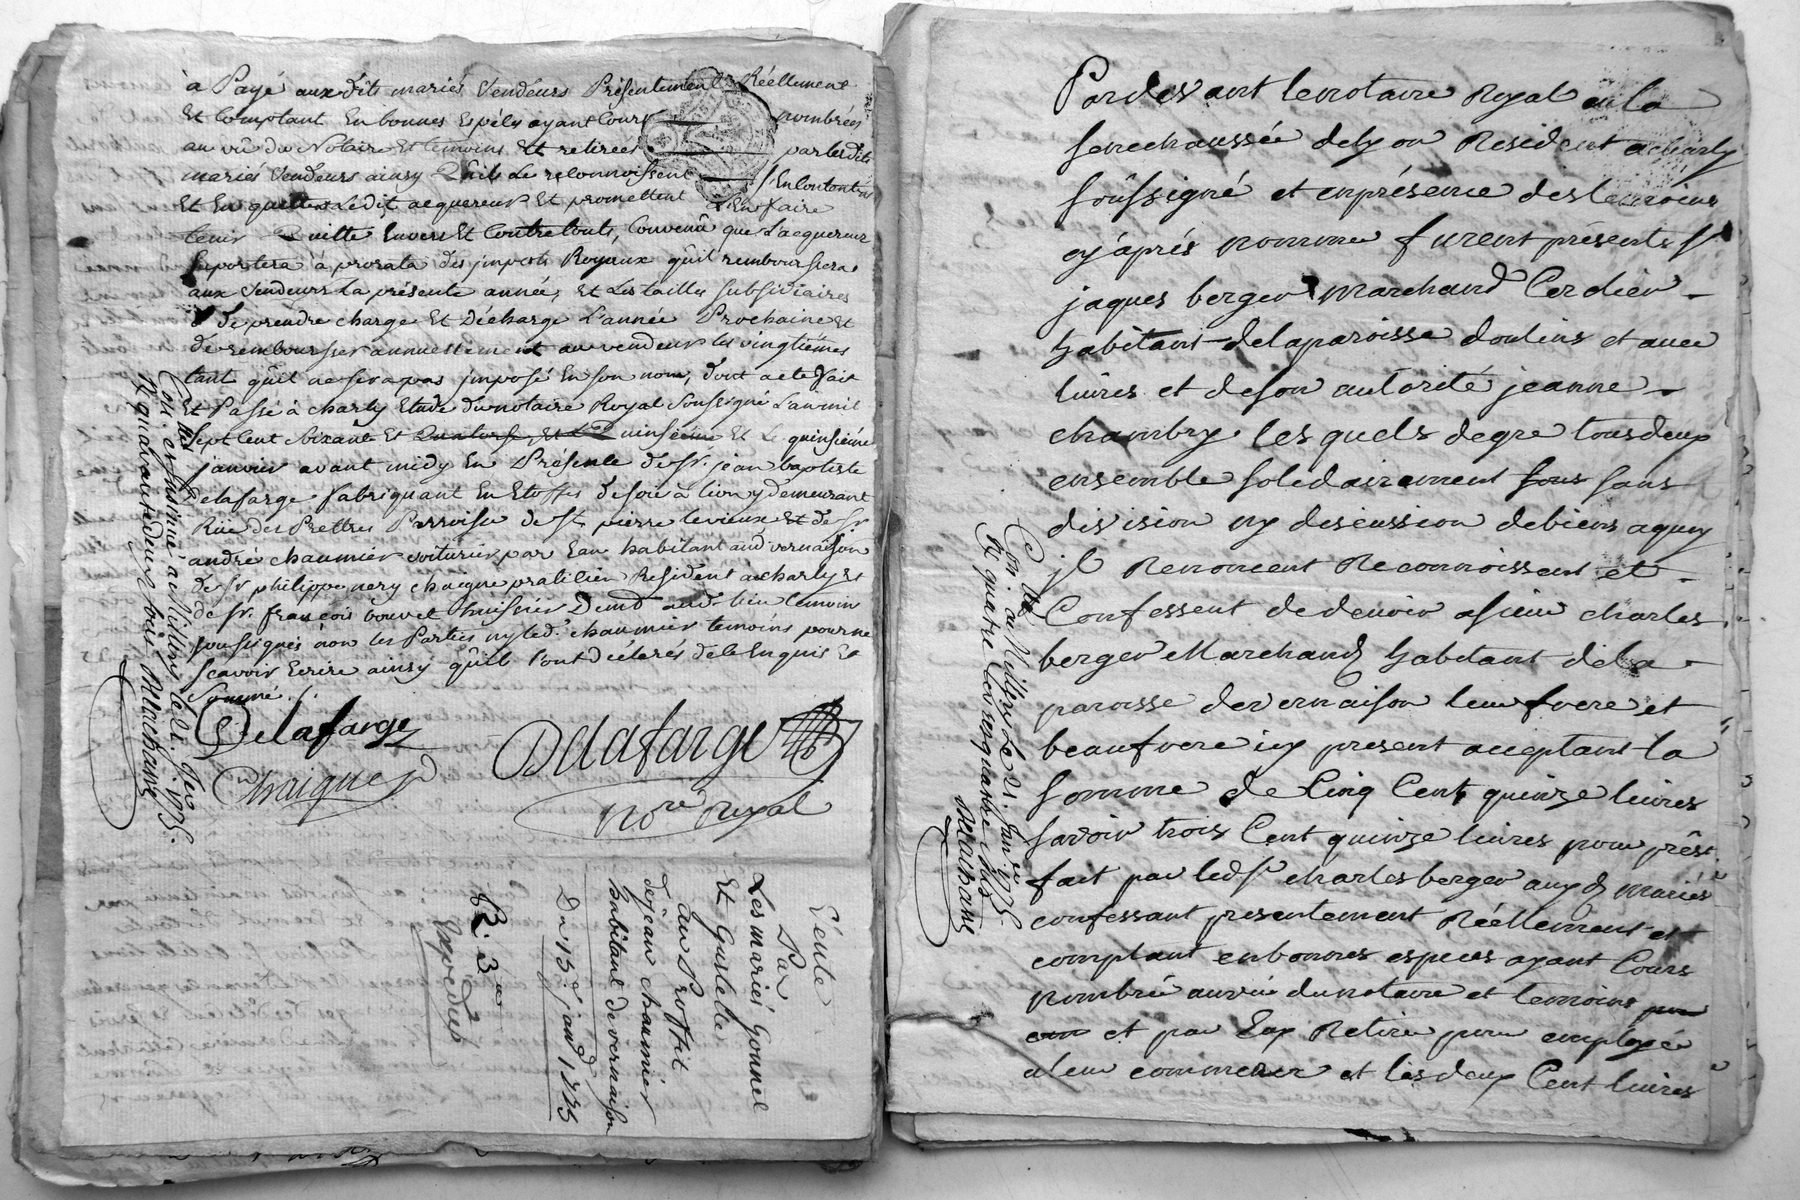 à Payé aux dits mariés Vendeurs Présentement Réellement
Et Comptant En bonnes Espéces ayant Cours nombrées
au vû du Notaire Et temoins Et retirées par lesdits
mariés Vendeurs ainsy Quils Le reconnoissent s'En Contontent
Et En quittent Ledit acquereur Et promettent L'En faire
tenir Quitte Envers Et Contre touts, Convenû que L'acquereur
Suportera à prorata des impots Royaux qu'il remboursera
aux Vendeurs La présente année, Et Les tailles Subsidiaires
de prendre charge Et Décharge L'année Prochaine Et
de rembourser annuellement au vendeur les vingtiémes
tant qu'il ne sera pas imposé En son nom, dont acte Fait
Et Passé à charly Etude du notaire Royal Soussigné L'an mil
Sept Cent Soixante Et Quinsiéme Et Le quinsiéme
janvier avant midy En Présence de Sr. jean baptiste
delafarge fabriquant En Etoffes de soie à lion y demeurant
Rüe des Prettres Parroisse de St. pierre le vieux Et de Sr
andré chaumier voiturier par Eau habitant aud. vernaison
de Sr philippe nery chaigne praticien Résident à charly Et
de Sr. françois bouvet huissier Demt audt. lieu temoin
soussignés non les Parties ny led. chaumier temoins pour ne
scavoir Ecrire ainsy qu'ils l'ont déclarés de ce Enquis Et
Sommé ./.
Delafarge
Chaigne
Delafarge
nore royal
Con. et Insinué à Millery le 21. Jer 1775.
R. quarante deux sols
Vente
Par
Les mariés Gonnel
Et Gustelle
Au Proffit
de jean chaumier
habitant de vernaison
Du 15e janer 1775
R. 3
Expédiés
Pardevant le notaire Royal en la
senechaussée de lyon Résident a charly
soussigné et en présence des temoins
cy aprés nommé furent présents Sr
jaques berger Marchand Cordier
habitant de la paroisse doulins et avec
luires et de son autorité jeanne
chambry lesquels de gre tous deux
ensemble solidairement sans
division ny descussion de biens a quoy
jl Renoncent Reconnoissent et
Confessent de devoir a sieur charles
berger Marchand habitant de la
paroisse de vernaison leur frere et
beaufrere icy present acceptant la
somme de Cinq Cent quinze livres
savoir trois Cent quinze livres pour prêt
fait par led Sr charles berger aux d mariés
confessant presentement Réellement et
comptant en bonnes especes ayant Cours
nombré au vu du notaire et temoins
et par Eux Retiré pour employé
a leur commerce et les deux Cent livres
Con. à Millery le 21. Janer 1775.
R. quatre livres quatre sols